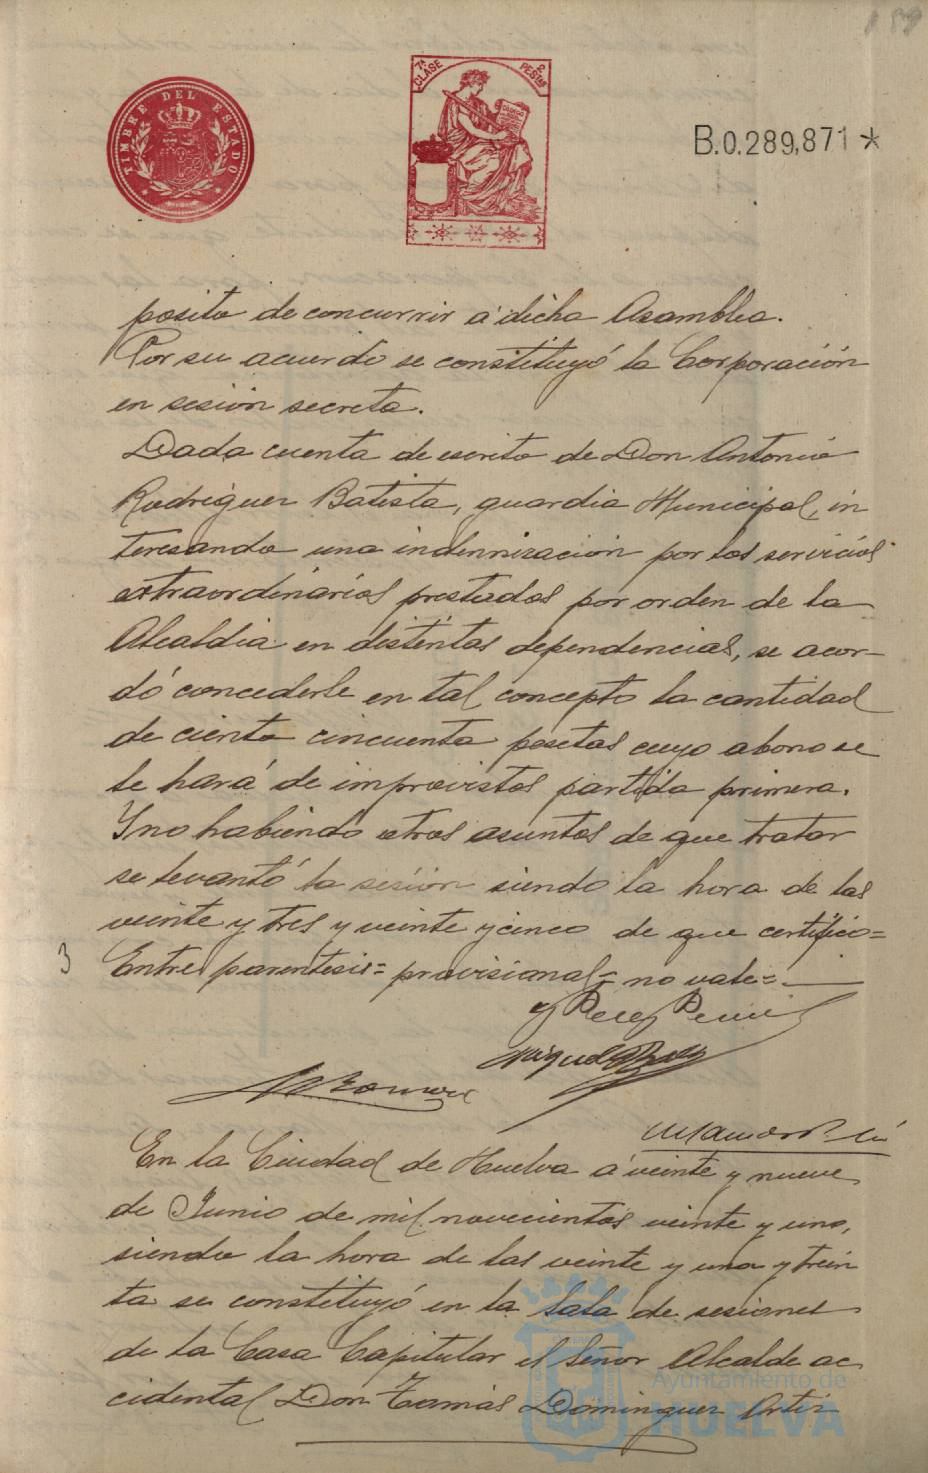 139
TIMBRE DEL ESTADO
7ª CLASE
2 PESETAS
B.0.289,871*
posito de concurrir á dicha Asamblea.
Por su acuerdo se constituyó la Corporación
en sesión secreta.
Dada cuenta de escrito de Don Antonio
Rodriguez Batista, guardia Municipal, in
teresando una indemnización por los servicios
extraordinarios prestados por orden de la
Alcaldia en distintas dependencias, se acor-
dó concederle en tal concepto la cantidad
de ciento cincuenta pesetas cuyo abono se
le hará de imprevistos partida primera.
Y no habiendo otros asuntos de que tratar
se levantó la sesión siendo la hora de las
veinte y tres y veinte y cinco de que certifico=
3
Entre parentesis= provisional= no vale=
En la Ciudad de Huelva á veinte y nueve
de Junio de mil novecientos veinte y uno,
siendo la hora de las veinte y una y trein
ta se constituyó en la Sala de sesiones
de la Casa Capitular el Señor Alcalde ac
cidental Don Tomás Dominguez Ortiz
Ayuntamiento de
HUELVA